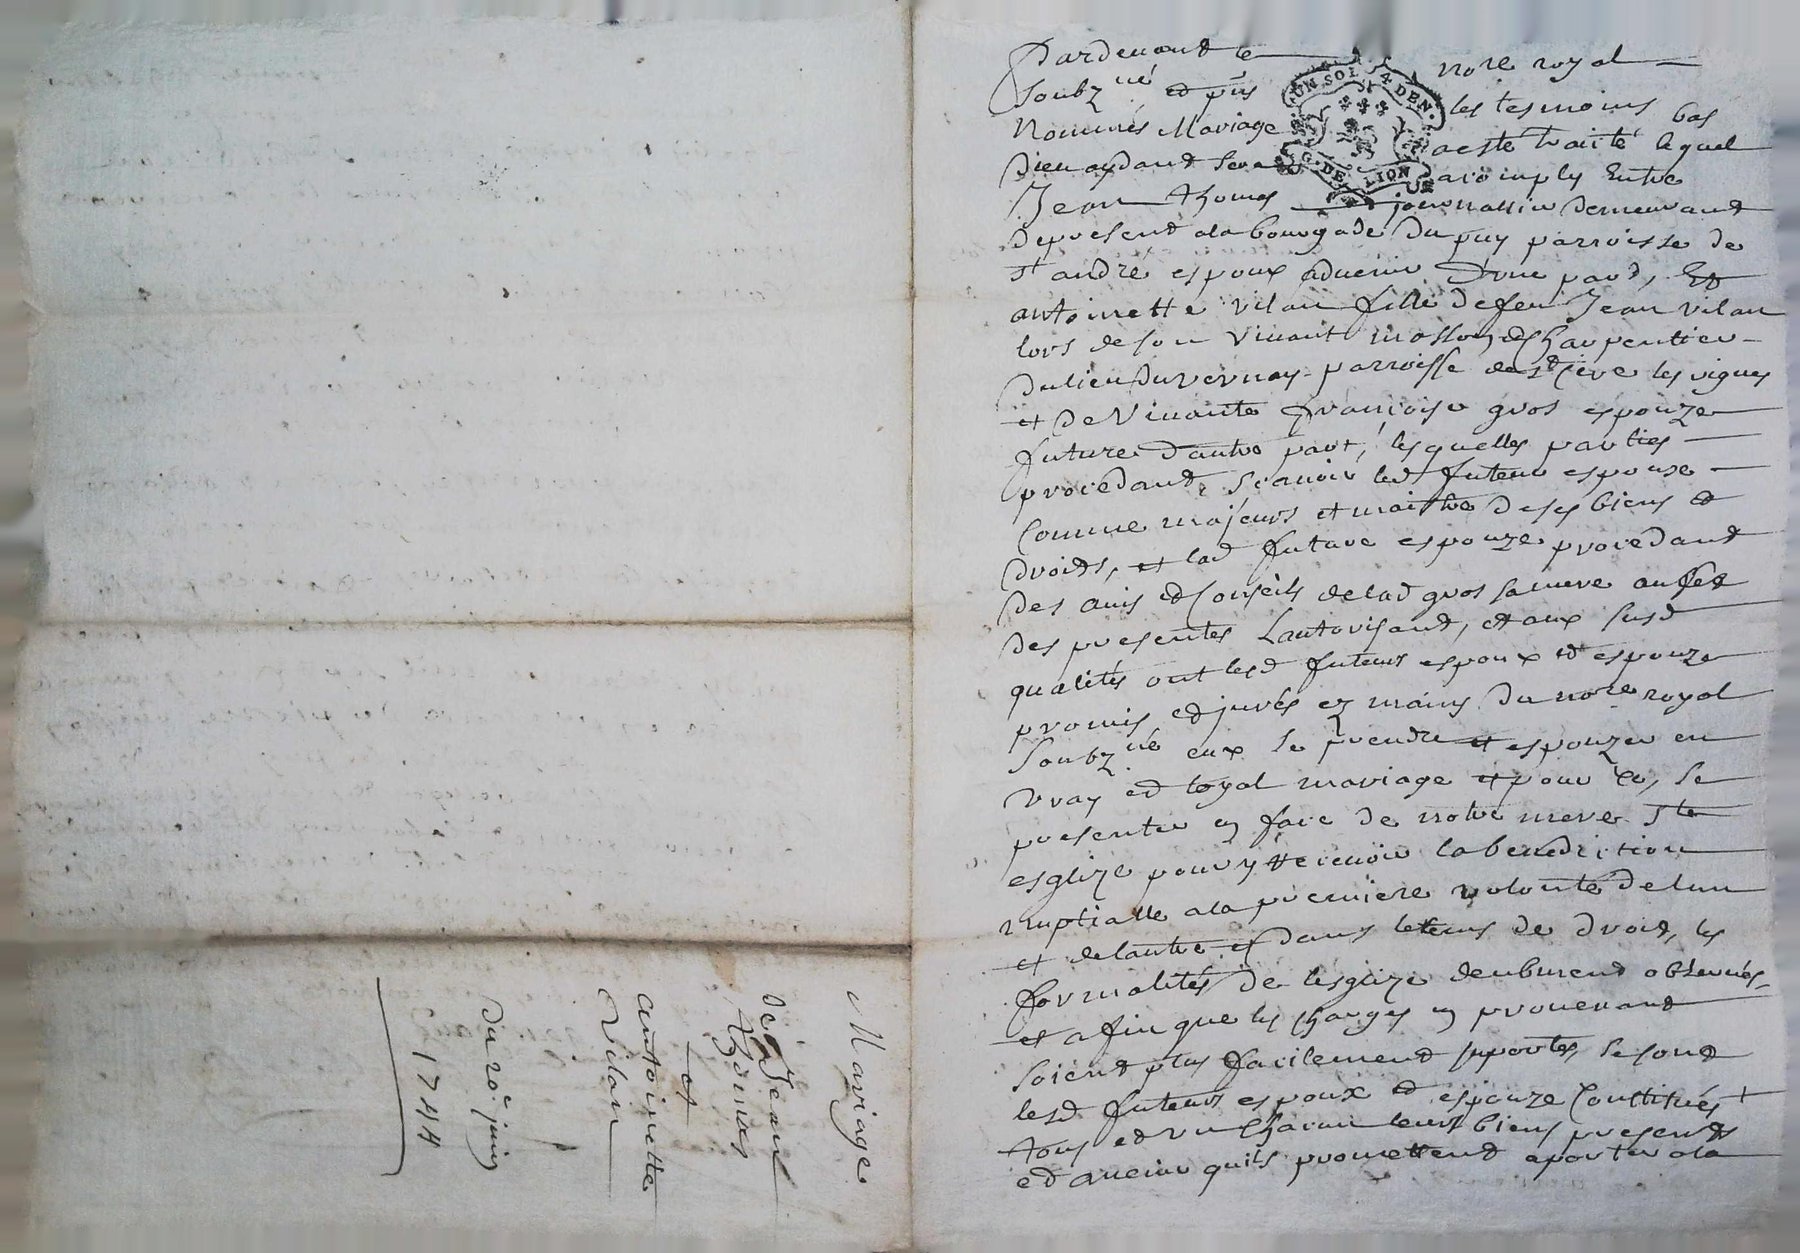 Mariage
De Jean
thomas
et
antoinette
Vilan
du 20e juin
1744
Pardevant le notre royal
soubzné et pns les tesmoins bas
Nommés Mariage a esté traité lequel
Dieu aydant sera accomply Entre
Jean thomas journallier demeurant
de present a la bourgade du puy parroisse de
st andré espoux advenir D'une part, Et
antoinette vilan fille de feu Jean vilan
lors de son vivant masson et charpentier
du lieu du vernay parroisse de les vignes
et De Vivante françoise gros espouze
future D'autre part, lesquelles parties
procedant, scavoir led futeur espoux
Comme majeurs et maitre de ses biens et
droits, et lad future espouze procedant
Des avis et Conseils de lad gros sa mere
Des presentes L'autorisant, et aux susd
qualités ont lesd futeurs espoux et espouze
promis et jurés ez mains du notre royal
soubzné eux se prendre et espouzer en
vray et loyal mariage et pour ce, se
presenter en face de notre mere ste
esglize pour y recevoir la benediction
nuptialle a la premiere volonté de lun
et de lautre et dans le tems de droit, les
formalités de lesglize deubment observées
et afin que les charges en provenant
soient plus facilement suportés, se sont
lesd futeurs espoux et espouze Constitués
tous et un chacun leurs biens presents
et avenir quils promettent aporter a la
UN SOL 4 DEN.
G. DE LION